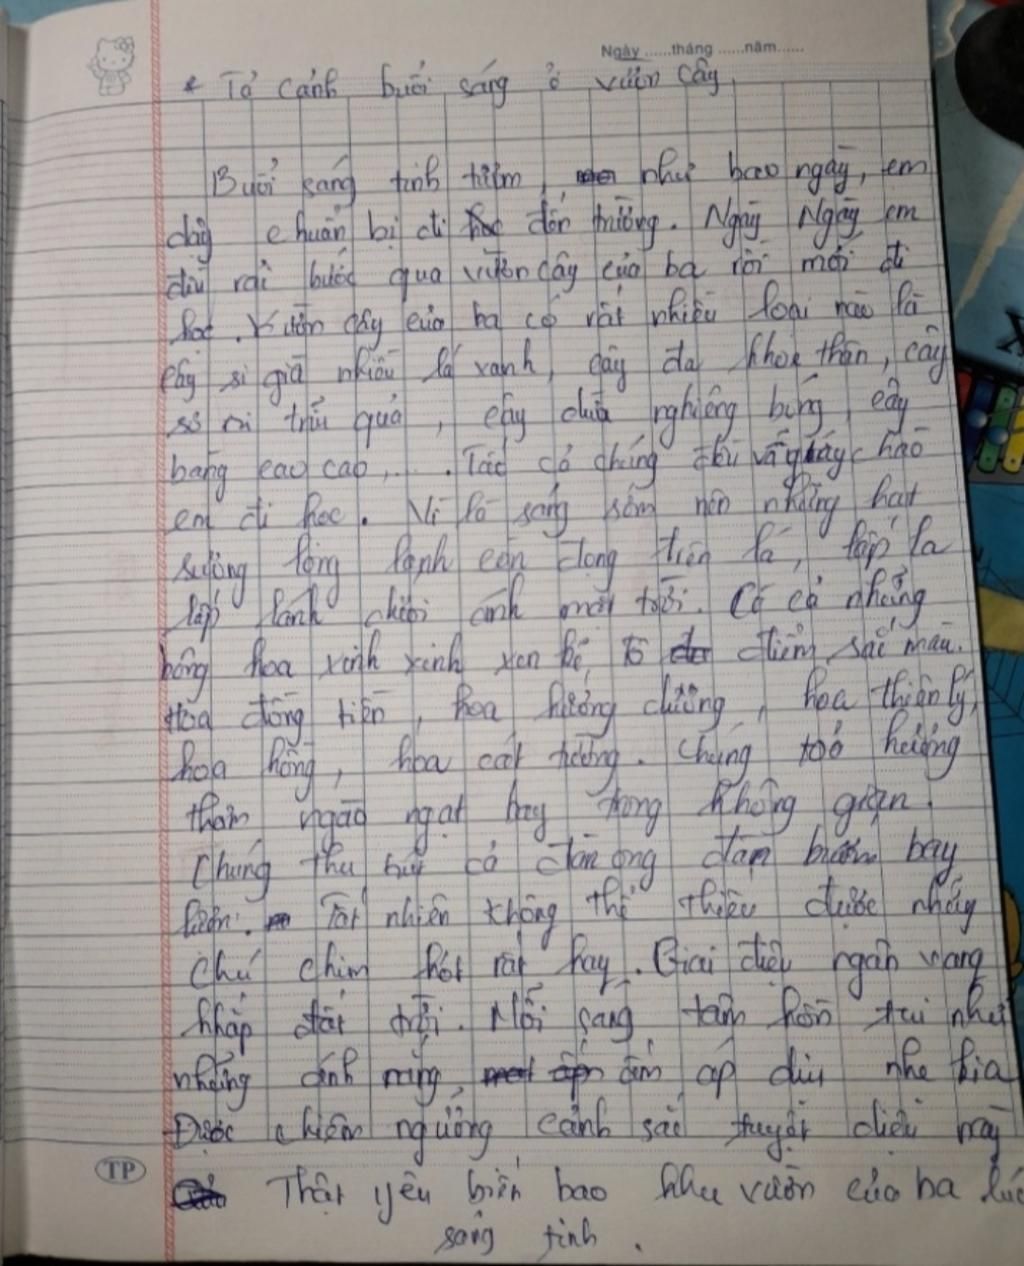 Ngày ......tháng ......năm......
* Tả cảnh buổi sáng ở vườn cây
Buổi sáng tinh tiềm, như bao ngày, em
dậy chuẩn bị đi đến trường. Ngày Ngày em
đều rải bước qua vườn cây của ba rồi mới đi
học. Vườn cây của ba có rất nhiều loại nào là
cây si già nhiều lá xanh, cây đa khoe thân, cây
sơ ri trĩu quả, cây dừa nghiêng bóng, cây
bàng cao cao,... . Tất cả chúng đều vẫy chào
em đi học. Vì là sáng sớm nên những hạt
sương lóng lánh còn đọng trên lá, lấp la
lấp lánh dưới ánh mặt trời. Có cả những
bông hoa xinh xinh xen kẽ, tô điểm sắc màu.
Hoa đồng tiền, hoa hướng dương, hoa thiên lý,
hoa hồng, hoa cát tường. Chúng toả hương
thơm ngào ngạt bay trong không gian.
Chúng thu hút cả đàn ong đàn bướm bay
lượn. Tất nhiên không thể thiếu được mấy
chú chim hót rất hay. Giai điệu ngân vang
khắp đất trời. Mỗi sáng tâm hồn tui như
những ánh nắng, ấm áp dịu nhẹ kia
Được chiêm ngưỡng cảnh sắc tuyệt diệu này
Thật yêu biết bao khu vườn của ba lúc
sáng tinh .
TP